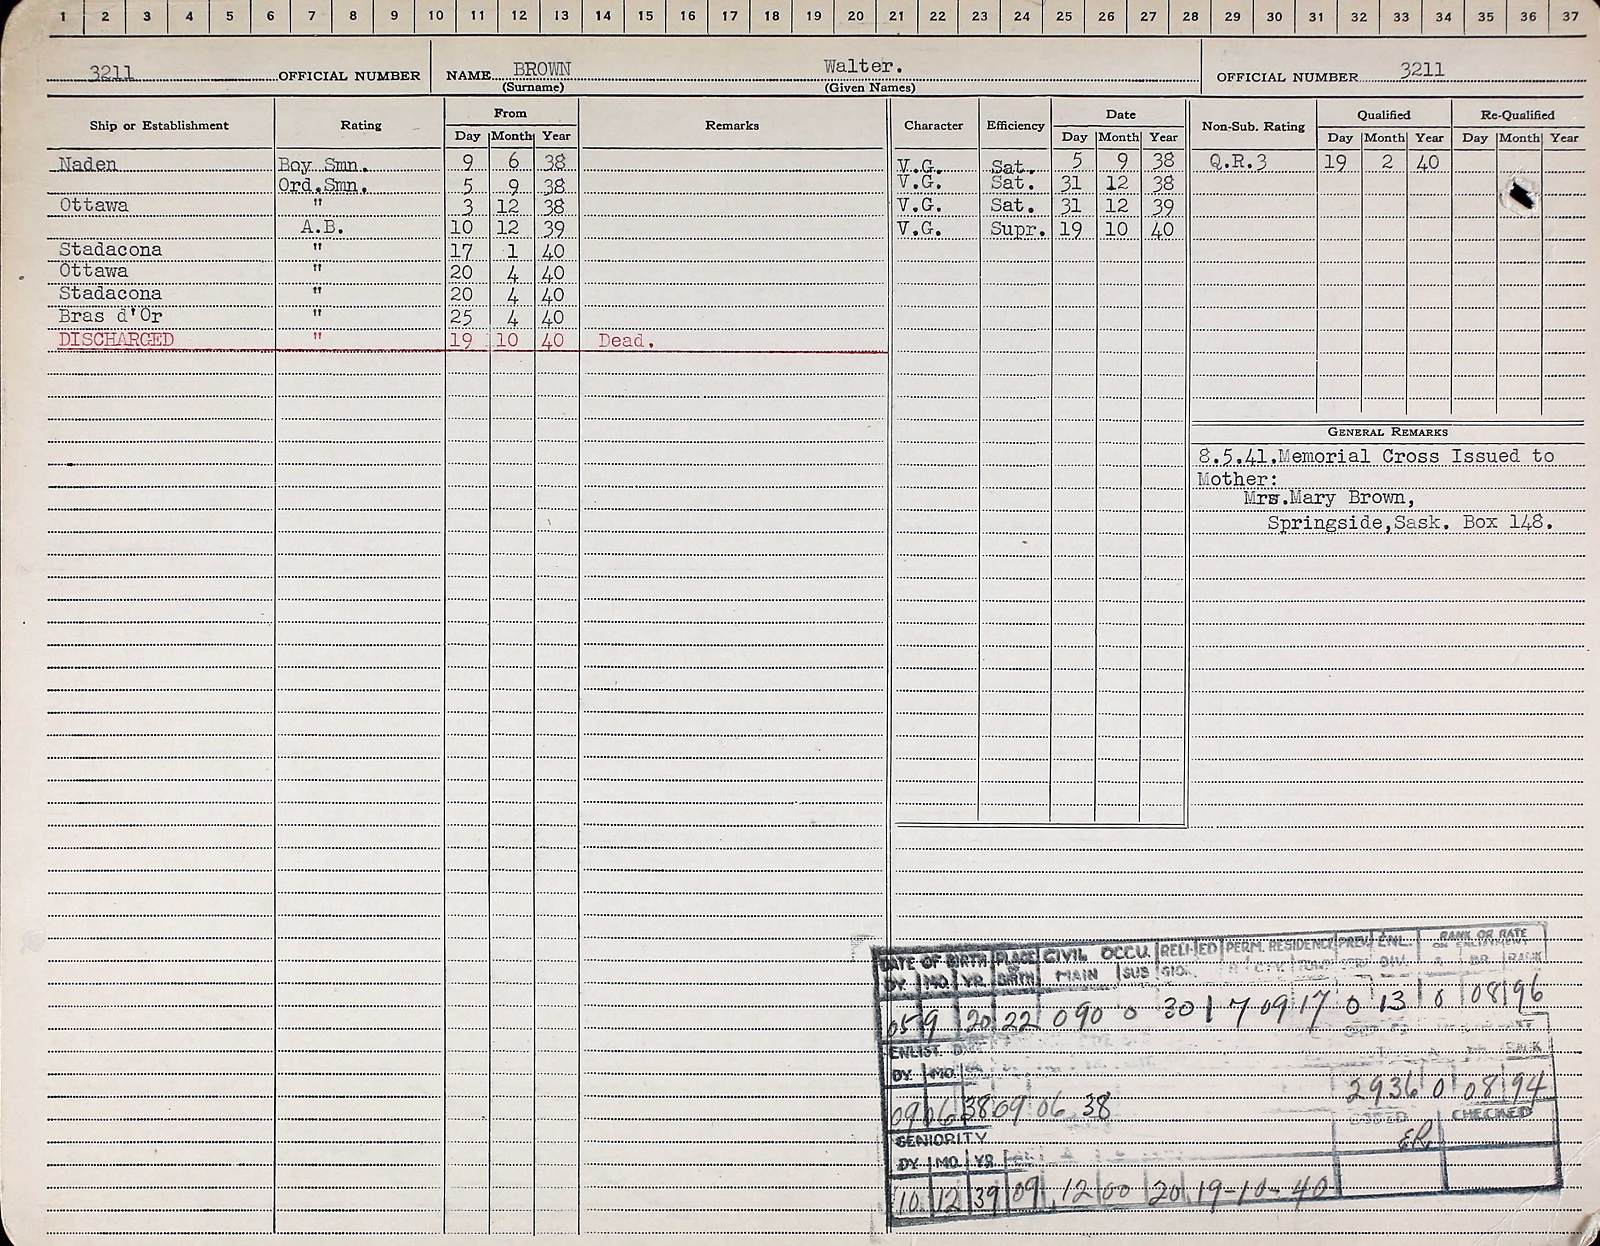 1 2 3 4 5 6 7 8 9 10 11 12 13 14 15 16 17 18 19 20 21 22 23 24 25 26 27 28 29 30 31 32 33 34 35 36 37
3211 OFFICIAL NUMBER NAME BROWN Walter. OFFICIAL NUMBER 3211
(Surname) (Given Names)
Ship or Establishment Rating From Remarks Character Efficiency Date Non-Sub. Rating Qualified Re-Qualified
Day Month Year Day Month Year Day Month Year Day Month Year
Naden Boy Smn. 9 6 38 V.G. Sat. 5 9 38 Q.R.3 19 2 40
Ord.Smn. 5 9 38 V.G. Sat. 31 12 38
Ottawa " 3 12 38 V.G. Sat. 31 12 39
A.B. 10 12 39 V.G. Supr. 19 10 40
Stadacona " 17 1 40
Ottawa " 20 4 40
Stadacona " 20 4 40
Bras d'Or " 25 4 40
DISCHARGED " 19 10 40 Dead.
GENERAL REMARKS
8.5.41.Memorial Cross Issued to
Mother:
Mrs.Mary Brown,
Springside,Sask. Box 148.
DATE OF BIRTH PLACE OF BIRTH CIVIL OCCU. PERM. RESIDENCE PREV. ENL. RANK OR RATE
DY. MO. YR. MAIN SUB DIV. RANK
05 9 20 22 090 0 30 1 7 09 17 0 13 0 08 96
ENLIST.
DY. MO.
2936 0 08 94
09 06 38 09 06 38
CHECKED
SENIORITY
ER.
DY. MO. YR.
10 12 39 09 12 00 20 19-10-40